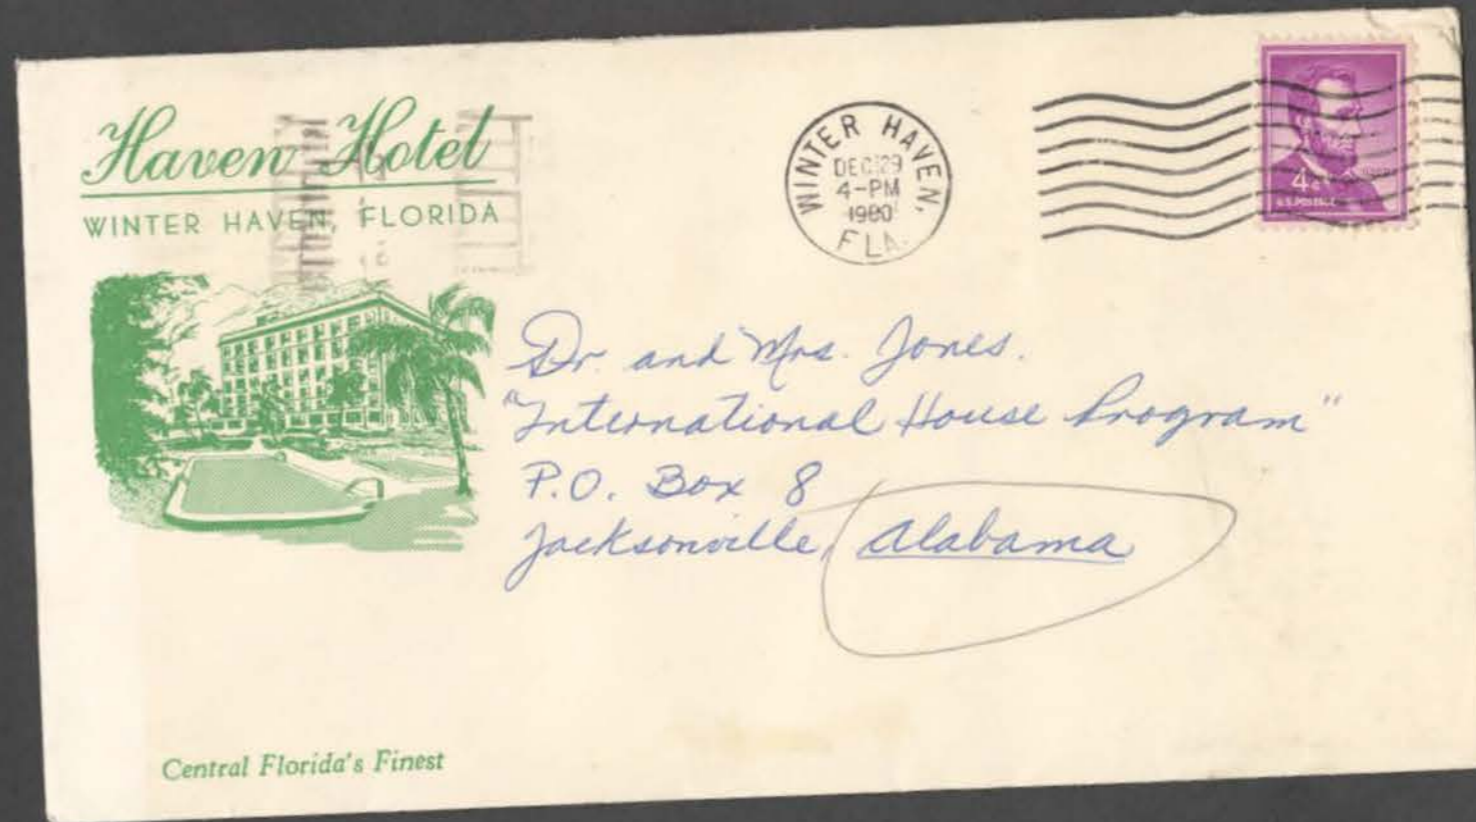 Haven Hotel
WINTER HAVEN, FLORIDA
WINTER HAVEN,
DEC 29
4-PM
1960
FLA.
4¢
U.S. POSTAGE
Dr. and Mrs. Jones.
"International House Program"
P.O. Box 8
Jacksonville, Alabama
Central Florida's Finest